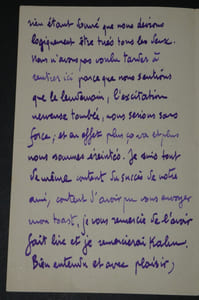 rien étant donné que nous devions
logiquement être tués tous les deux.
Nous n'avons pas voulu tarder à
rentrer ici parce que nous sentions
que le lendemain, l'excitation
nerveuse tombée, nous serions sans
force, et en effet plus ça va et plus
nous sommes éreintés. Je suis tout
de même content du succès de notre
ami, content d'avoir pu vous envoyer
mon toast, je vous remercie de l'avoir
fait lire et je remercierai Kahn.
Bien entendu et avec plaisir,